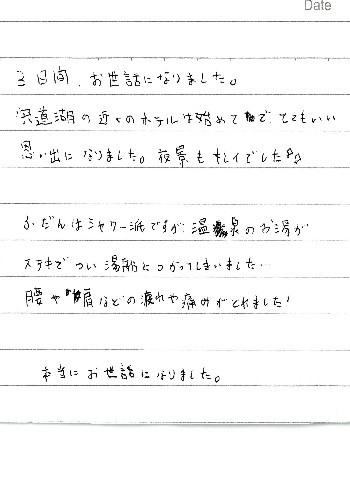 Date
3日間、お世話になりました。
宍道湖の近くのホテルは始めてで、とてもいい
思い出になりました。夜景もキレイでした♪♪
ふだんはシャワー派ですが、温泉のお湯が
ステキでつい湯船につかってしまいました…
腰や肩などの疲れや痛みがとれました!
本当にお世話になりました。